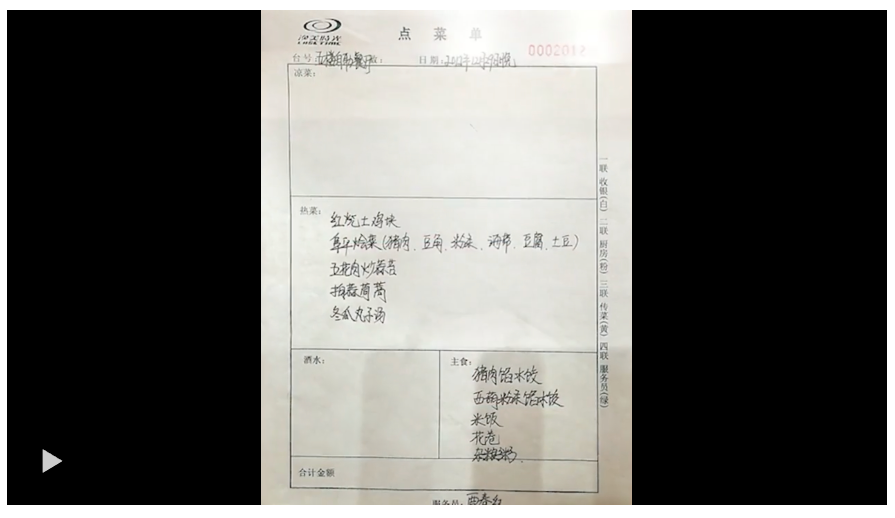 点 菜 单
00020150
台号 五楼自助餐厅
日期:
凉菜:
热菜:
红烧土鸡块
阜平烩菜(猪肉、豆角、粉条、海带、豆腐、土豆)
五花肉炒蒜苔
拍蒜茼蒿
冬瓜丸子汤
酒水:
主食:
猪肉馅水饺
西葫粉条馅水饺
米饭
花卷
杂粮粥
合计金额
服务员:
一联 收银(白) 二联 厨房(粉) 三联 传菜(黄) 四联 服务员(绿)